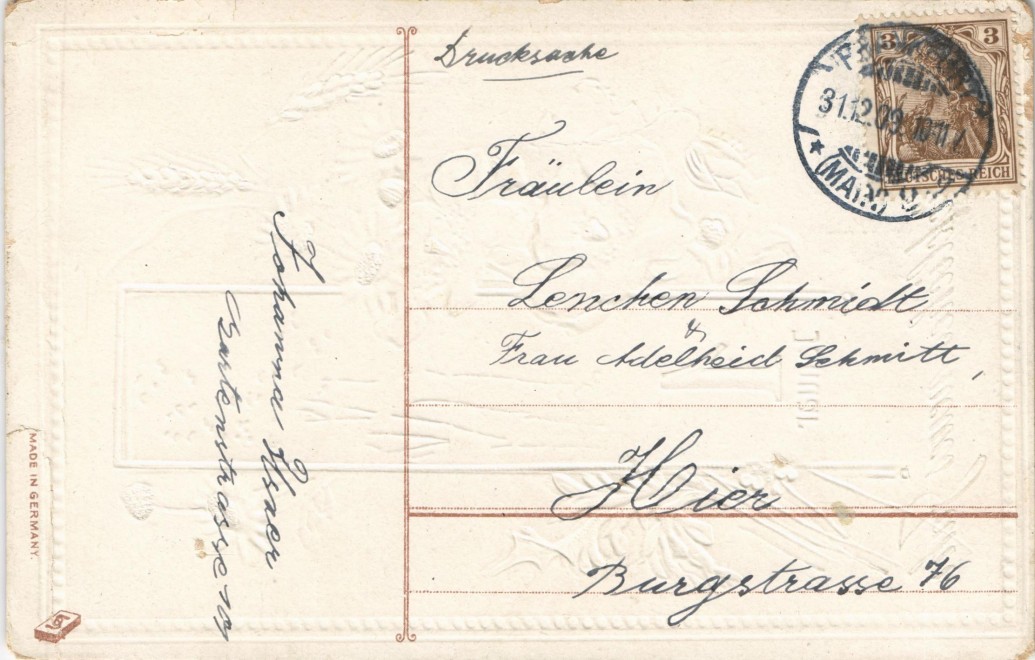 Drucksache
3 3
FRANKFURT
31.12.09. 10-11 V.
* (MAIN) 9
DEUTSCHES REICH
Fräulein
Lenchen Schmidt
&
Frau Adelheid Schmitt,
Hier
Burgstrasse 76
Johanna
Gartenstrasse
MADE IN GERMANY.